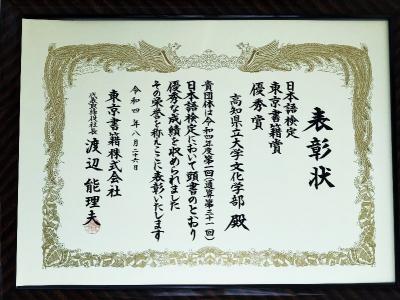 表彰状
日本語検定
東京書籍賞
優秀賞
高知県立大学文化学部 殿
貴団体は令和四年度第一回(通算第三十一回)
日本語検定において頭書のとおり
優秀な成績を収められました
その栄誉を称えここに表彰いたします
令和四年八月二十六日
東京書籍株式会社
代表取締役社長 渡辺能理夫